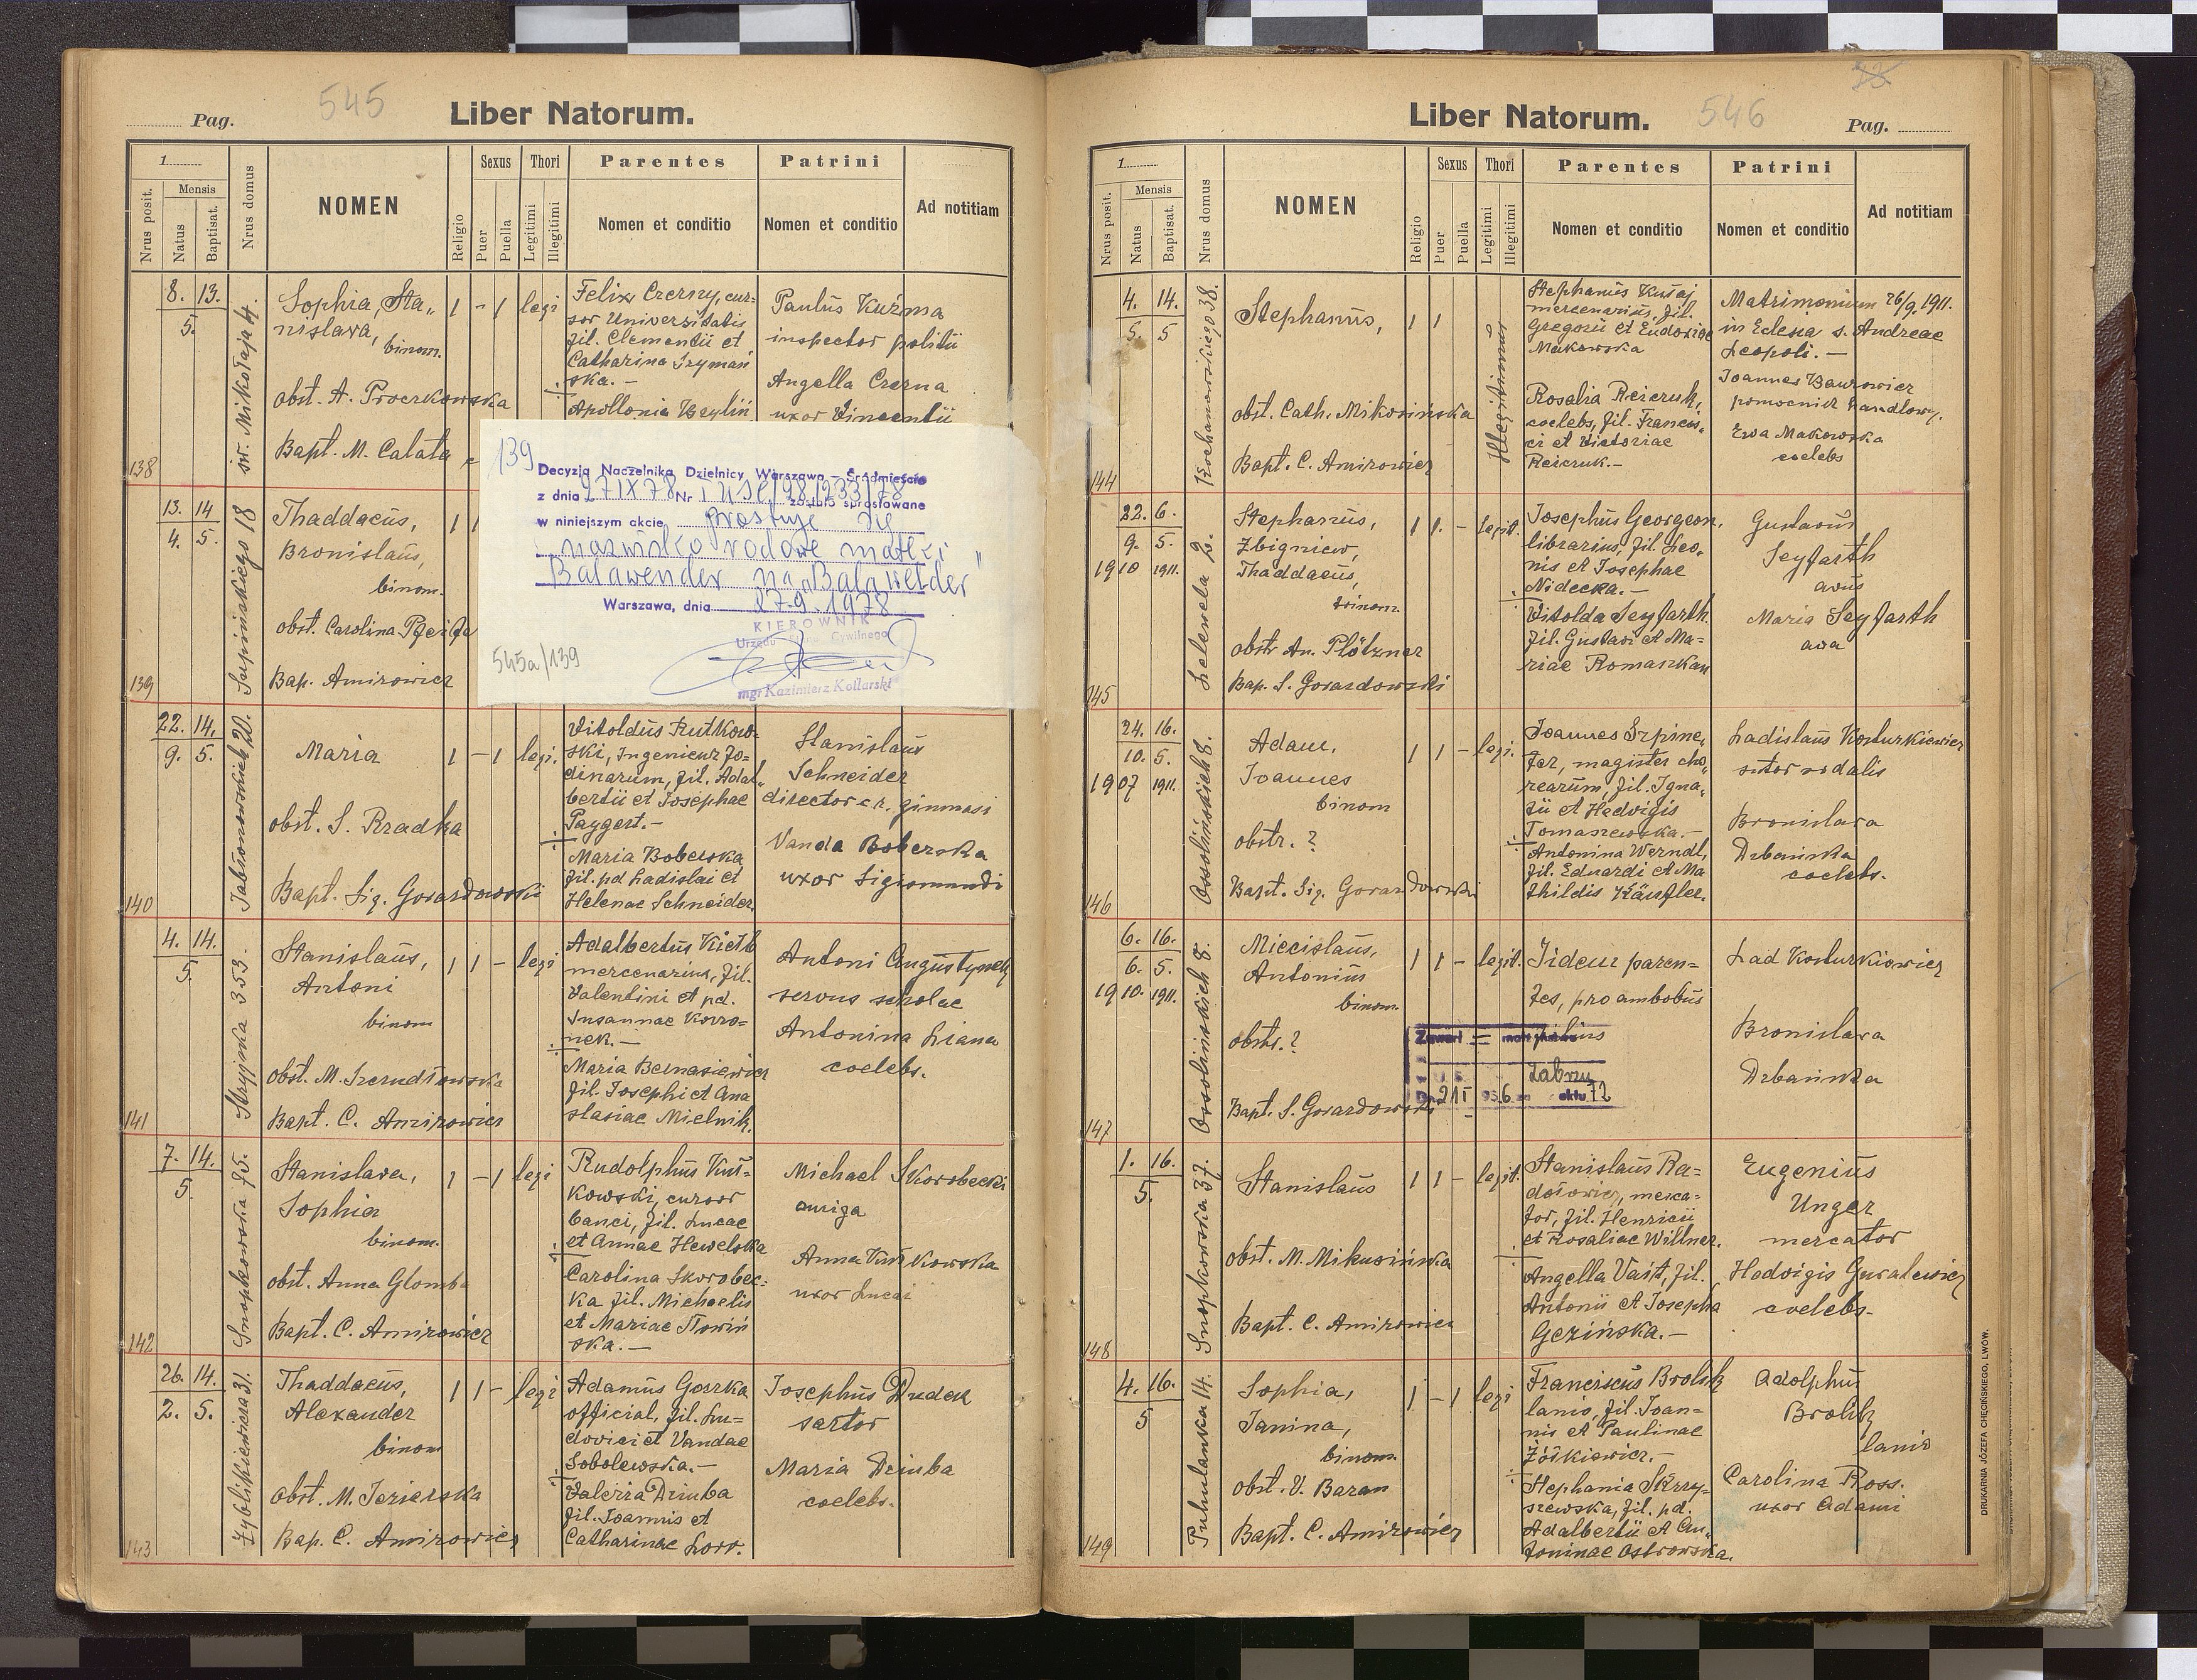 545
Pag.
Liber Natorum.
1
Nrus posit.
Mensis
Natus
Baptisat.
Nrus domus
NOMEN
Religio
Sexus
Puer
Puella
Thori
Legitimi
Illegitimi
Parentes
Nomen et conditio
Patrini
Nomen et conditio
Ad notitiam
138
8. 13.
5.
św. Mikołaja 4.
Sophia, Sta„
nislava,
binom.
obst. A. Proczkowska
Bapt. M. Calata
1 - 1 legi
Felix Czerny, cur=
sor Universitatis
fil. Clementii et
Catharina Szymań
ska. -
Apollonia
Paulus Kuźma
inspector politii
Angella Czerna
uxor Vincentii
139
13. 14
4. 5.
Supińskiego 18
Thaddaeus,
Bronislaus,
binom.
obst. Carolina
Bap. Amirowicz
1 1
139
Decyzją Naczelnika Dzielnicy Warszawa – Śródmieście
z dnia 27 IX 78 Nr zostało sprostowane
w niniejszym akcie prostuje się
"nazwisko rodowe matki
Balawender na „Balawelder"
Warszawa, dnia 27-9-1978
KIEROWNIK
Urzędu Stanu Cywilnego
mgr Kazimierz Kollarski
545a/139
140
22. 14.
9. 5.
Jabłonowskich 20.
Maria
obst. S. Rradka
Bapt. Sig. Gorazdowski
1 - 1 legi.
Vitoldus Rutkow=
ski, Ingenieur Jo=
dinarum, fil. Adal„
bertii et Josephae
Paygert. -
Maria Boberska
fil. pd Ladislai et
Helenae Schneider
Stanislaus
Schneider
director c. r. ginmasi
Vanda Boberska
uxor Sigismundi
141
4. 14.
5.
Stryjska 353.
Stanislaus,
Antoni
binom
obst. M. Szerudłowska
Bapt. C. Amirowicz
1 1 - legi
Adalbertus
mercenarius, fil.
Valentini et pd.
Susannae Korro=
nek. -
Maria Bernasiewicz
fil. Josephi et Ana
stasiae Mielnik.
Antoni Augustynek
servus scholae
Antonina Liana
coelebs.
142
7. 14.
5.
Snopkowska 75.
Stanislava,
Sophia
binom.
obst. Anna Glomba
Bapt. C. Amirowicz
1 - 1 legi
Rudolphus Kuś=
kowski, cursor
banci, fil. Lucae
et Annae Hewelska
Carolina Skorobec=
ka fil. Michaelis
et Mariae Słowiń
ska. -
Michael Skorobecki
auriga
Anna Kuśkowska
uxor Lucai
143
26. 14.
2. 5.
Zyblikiewicza 31.
Thaddaeus,
Alexander
binom
obst. M. Jezierska
Bap. C. Amirowicz
1 1 - legi
Adamus Gorzka
official, fil. Lu=
dovici et Vandae
Sobolewska. -
Valeria Dziuba
fil. Joannis et
Catharinae Lorr.
Josephus Dudek
sartor
Maria Dziuba
coelebs.
Liber Natorum.
546
Pag.
1
Nrus posit.
Mensis
Natus
Baptisat.
Nrus domus
NOMEN
Religio
Sexus
Puer
Puella
Thori
Legitimi
Illegitimi
Parentes
Nomen et conditio
Patrini
Nomen et conditio
Ad notitiam
144
4. 14.
5. 5
Kochanowskiego 38.
Stephanus,
obst. Cath. Mikosińska
Bapt. C. Amirowicz
1 1
Illegitimus
Stephanus Kusaj
mercenarius, fil.
Gregorii et Eudoxiae
Makowska
Rosalia Reiczuk,
coelebs, fil. Francis„
ci et Victoriae
Reiczuk. -
Matrimonium 26/9. 1911.
in Eclesia s. Andreae
Leopoli. -
Joannes Baurowicz
pomocnick handlowy.
Ewa Makowska
coelebs
145
22. 6.
9. 5.
1910 1911.
Lelewela 2.
Stephanus,
Zbigniew,
Thaddaeus,
trinom.
obstr An. Plötzner
Bap. S. Gorazdowski
1 1. - legit.
Josephus Georgeon,
librarius, fil. Leo„
nis et Josephae
Nidecka. -
Vitolda Seyfarth.
fil. Gustavi et Ma=
riae Romaszkan
Gustavus
Seyfarth
avus
Maria Seyfarth
ava
146
24. 16.
10. 5.
1907 1911.
Ossolińskich 8.
Adam,
Joannes
binom
obstr. ?
Bapt. Sig. Gorazdowski
1 1 - legi.
Joannes Szpine„
ter, magister cho„
rearum, fil. Igna„
tii et Hedvigis
Tomaszewska. -
Antonina Werndl,
fil. Eduardi et Ma
thildis Käufler.
Ladislaus Kosturkiewicz
sutor sodalis
Bronislava
Drbańska
coelebs.
147
6. 16.
6. 5.
1910. 1911.
Ossolińskich 8.
Miecislaus,
Antonius
binom.
obstr. ?
Bapt. S. Gorazdowski
1 1 - legit.
Iidem paren=
tes, pro ambobus
filius
Lad Kosturkiewicz
Bronislava
Drbańska
Zawarł małżeństwo
w U S Zabrzu
Dn. 21 I 1936 aktu 72
148
1. 16.
5.
Snopkowska 37.
Stanislaus
obst. M. Mikusińska
Bapt. C. Amirowicz
1 1 - legit.
Stanislaus Ra=
dołowicz, merca=
tor, fil. Henricii
et Rosaliae Willner.
Angella Vaist, fil.
Antonii et Josepha
Gezińska. -
Eugenius
Unger
mercator
Hedvigis Guralewicz
coelebs-
149
4. 16.
5
Puhulanka 14.
Sophia,
Janina,
binom.
obst. V. Baran
Bapt. C. Amirowicz
1 - 1 legi
Franciscus Brolik
lanio, fil. Joan=
nis et Paulinae
Żółkiewicz. -
Stephania Skrzy=
szewska, fil. pd.
Adalbertii et An„
toninae Ostrowska.
Adolphus
Brolik
lanio
Carolina Ross.
uxor Adami
DRUKARNIA JÓZEFA CHĘCIŃSKIEGO. LWÓW.